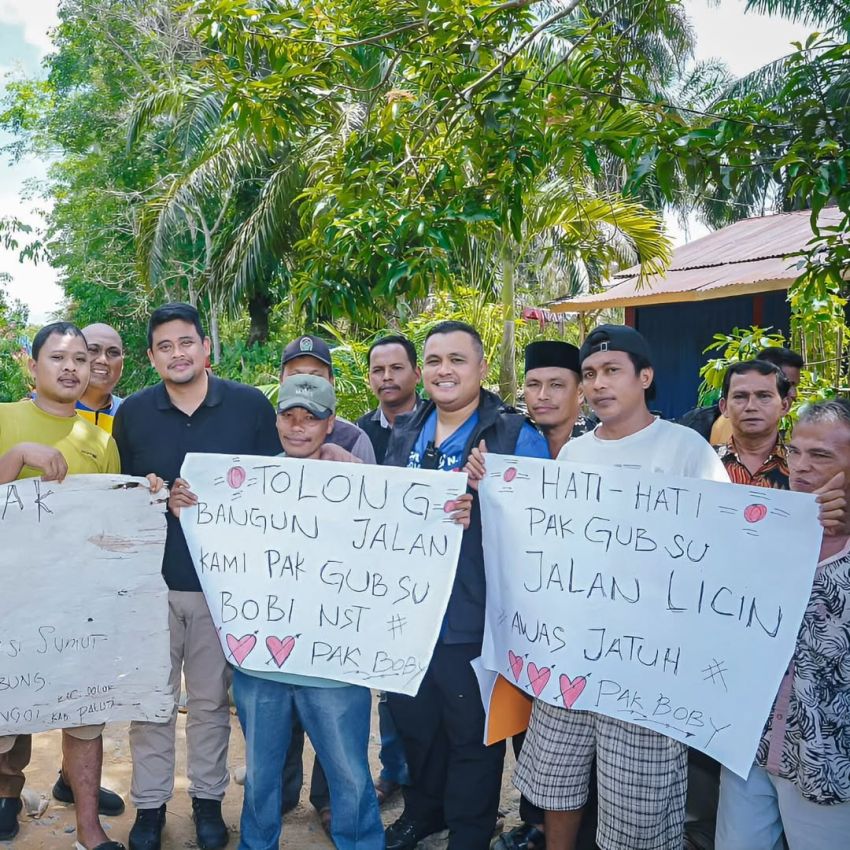 AK
SI SUMUT
BUNG.
KEC. DOLOK
NGOT. KAB PALUTA
TOLONG
BANGUN JALAN
KAMI PAK GUBSU
BOBI NST #
PAK BOBY
HATI-HATI
PAK GUBSU
JALAN LICIN
AWAS JATUH #
PAK BOBY